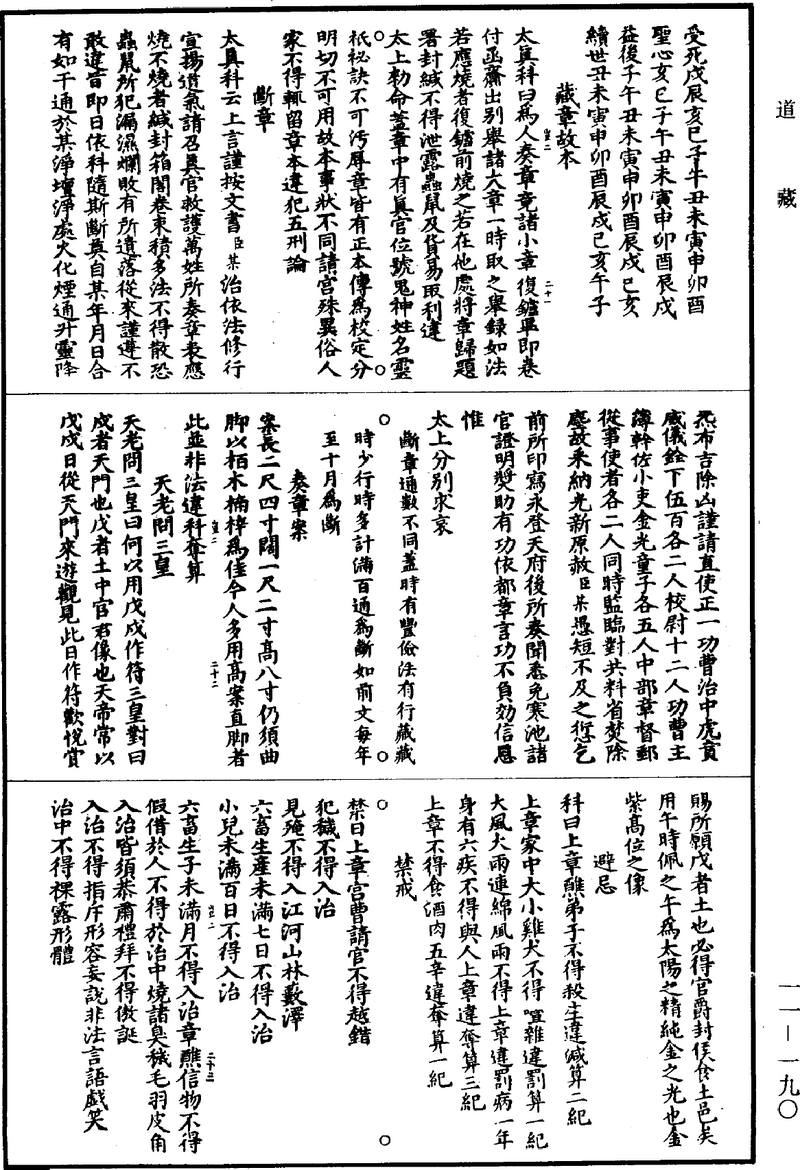 道藏
受死戌辰亥巳子午丑未寅申卯酉
聖心亥巳子午丑未寅申卯酉辰戌
益後子午丑未寅申卯酉辰戌巳亥
續世丑未寅申卯酉辰戌巳亥午子
藏章故本
太真科曰爲人奏章竟諸小章復鑪畢即卷
付函齋出別舉諸大章一時取之舉録如法
若應燒者復鑪前燒之若在他處將章歸題
署封緘不得泄露蟲鼠及貨易取利違
太上勑命蓋章中有眞官位號鬼神姓名靈
祇祕訣不可汚辱章皆有正本傳爲校定分
明切不可用故本事狀不同請官殊異俗人
家不得輒留章本違犯五刑論
斷章
太真科云上言謹按文書臣某治依法修行
宣揚道氣請召眞官救護萬姓所奏章表應
燒不燒者緘封箱閣卷束積多法不得散恐
蟲鼠所犯漏濕爛敗有所遺落從來謹遵不
敢違旨即日依科隨斯斷奠自某年月日合
有如干通於某淨壇淨處火化煙通升靈降
炁布吉除凶謹請直使正一功曹治中虎賁
威儀銓下伍百各二人校尉十二人功曹主
簿幹佐小吏金光童子各五人中部章督郵
從事使者各二人同時監臨對共料省焚除
塵故釆納光新原赦臣某愚短不及之愆乞
前所印寫永登天府後所奏聞悉免寒池諸
官證明獎助有功依都章言功不負効信恩
惟
太上分別求哀
斷章通數不同蓋時有豐儉法有行藏藏
時少行時多計滿百通爲斷如前文每年
至十月爲斷
奏章案
案長二尺四寸闊一尺二寸高八寸仍須曲
脚以栢木楠梓爲佳今人多用高案直脚者
此並非法違科奪算
天老問三皇
天老問三皇曰何以用戊戌作符三皇對曰
戌者天門也戊者土中官君像也天帝常以
戊戌日從天門來遊觀見此日作符歡悅賞
賜所願戊者土也必得官爵封侯食土邑矣
用午時佩之午爲太陽之精純金之光也金
紫高位之像
避忌
科曰上章醮弟子不得殺生違減算二紀
上章家中大小雞犬不得喧雜違罰算一紀
大風大雨連綿風雨不得上章違罰病一年
身有六疾不得與人上章違奪算三紀
上章不得食酒肉五辛違奪算一紀
禁戒
禁曰上章官曹請官不得越錯
犯穢不得入治
見殗不得入江河山林藪澤
六畜生產未滿七日不得入治
小兒未滿百日不得入治
六畜生子未滿月不得入治章醮信物不得
假借於人不得於治中燒諸臭穢毛羽皮角
入治皆須恭肅禮拜不得傲誕
入治不得指斥形容妄說非法言語戲笑
治中不得裸露形體
一一－一九〇